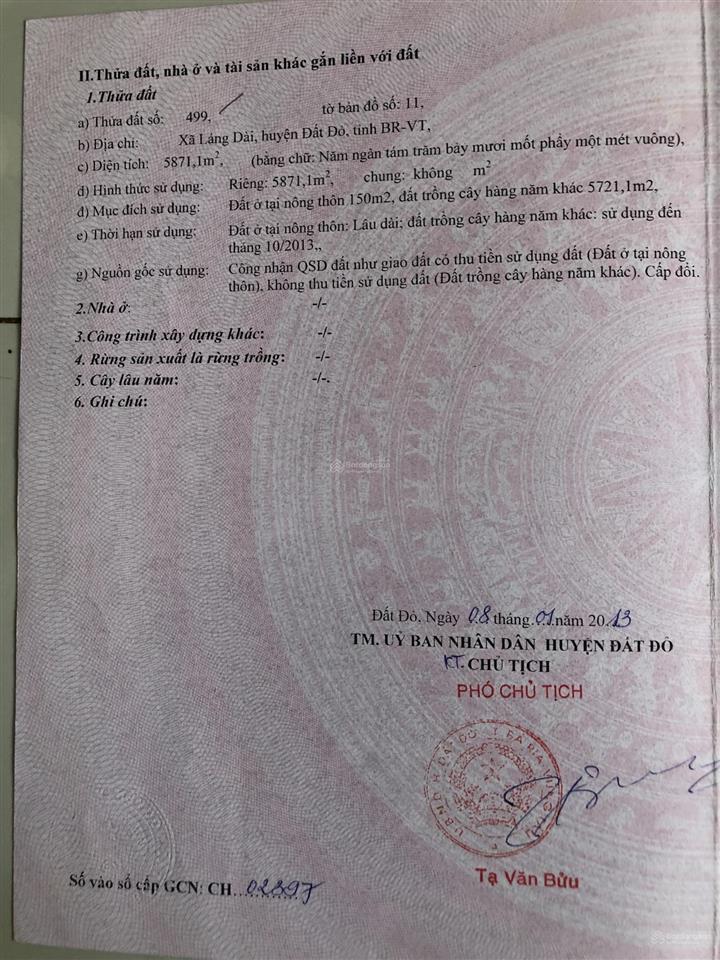 II.Thửa đất, nhà ở và tài sản khác gắn liền với đất
1.Thửa đất
a) Thửa đất số: 499, tờ bản đồ số: 11,
b) Địa chỉ: Xã Láng Dài, huyện Đất Đỏ, tỉnh BR-VT,
c) Diện tích: 5871,1m², (bằng chữ: Năm ngàn tám trăm bảy mươi mốt phẩy một mét vuông),
d) Hình thức sử dụng: Riêng: 5871,1m², chung: không m²
đ) Mục đích sử dụng: Đất ở tại nông thôn 150m2, đất trồng cây hàng năm khác 5721,1m2,
e) Thời hạn sử dụng: Đất ở tại nông thôn: Lâu dài; đất trồng cây hàng năm khác: sử dụng đến
tháng 10/2013,,
g) Nguồn gốc sử dụng: Công nhận QSD đất như giao đất có thu tiền sử dụng đất (Đất ở tại nông
thôn), không thu tiền sử dụng đất (Đất trồng cây hàng năm khác). Cấp đổi.
2.Nhà ở: -/-
3.Công trình xây dựng khác: -/-
4. Rừng sản xuất là rừng trồng: -/-
5. Cây lâu năm: -/-.
6. Ghi chú:
Batdongsan
Đất Đỏ, Ngày 08 tháng 01 năm 2013
TM. UỶ BAN NHÂN DÂN HUYỆN ĐẤT ĐỎ
KT. CHỦ TỊCH
PHÓ CHỦ TỊCH
Tạ Văn Bửu
Số vào sổ cấp GCN: CH 02897